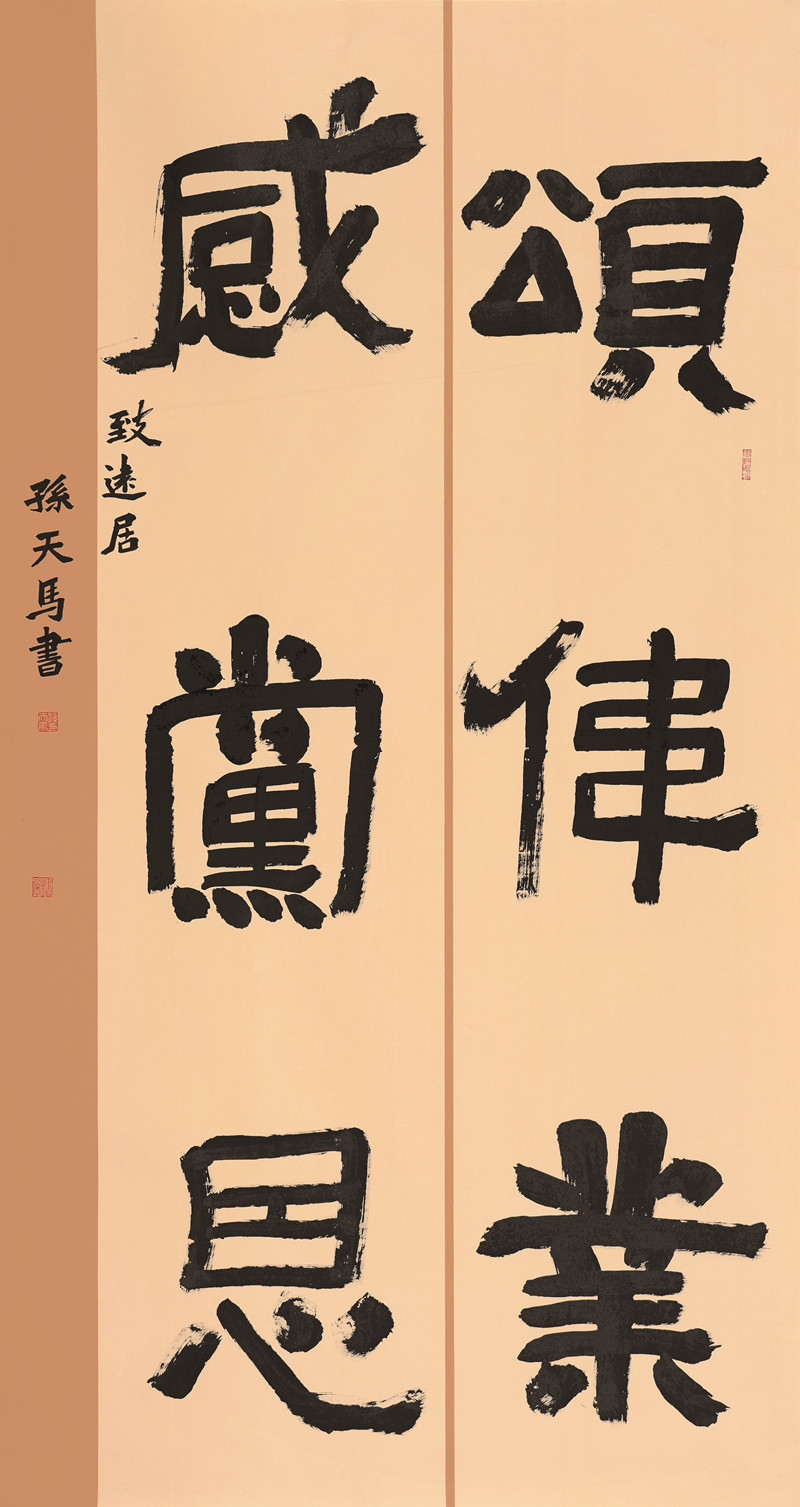 頌偉業
感黨恩
致遠居
孫天馬書